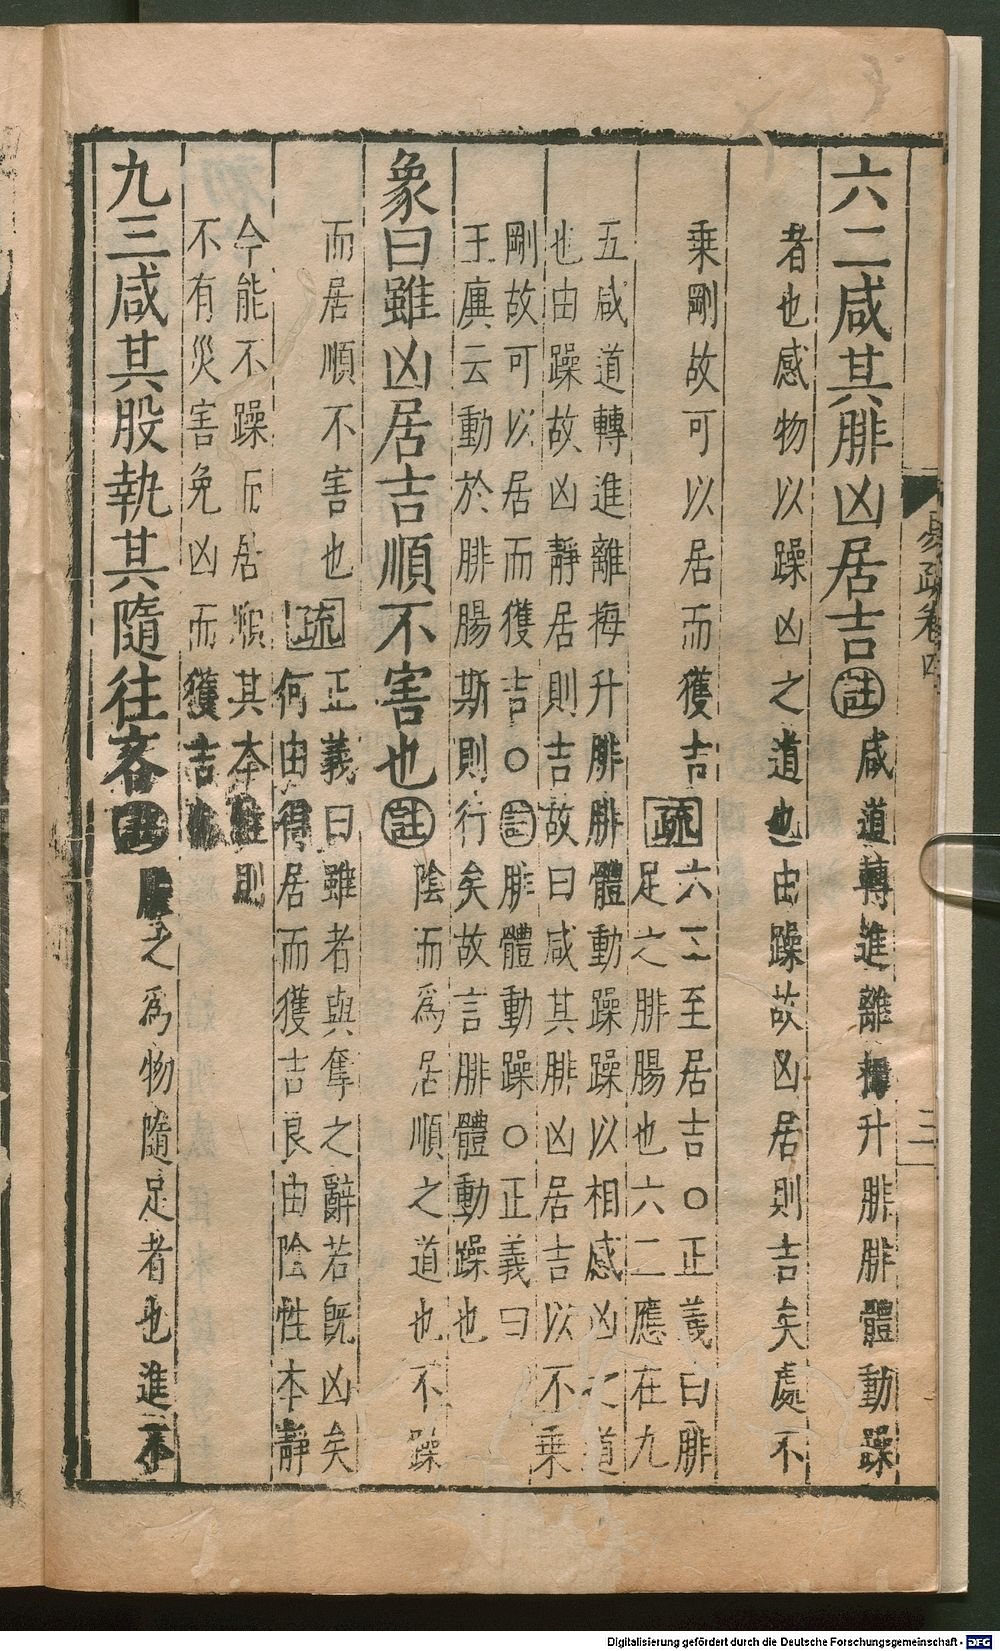 六二咸其腓凶居吉註咸道轉進離拇升腓腓體動躁
者也感物以躁凶之道也由躁故凶居則吉矣處不
乘剛故可以居而獲吉疏六二至居吉○正義曰腓
足之腓腸也六二應在九
五咸道轉進離拇升腓腓體動躁躁以相感凶之道
也由躁故凶靜居則吉故曰咸其腓凶居吉以不乘
剛故可以居而獲吉○註腓體動躁○正義曰
王廙云動於腓腸斯則行矣故言腓體動躁也
象曰雖凶居吉順不害也註陰而爲居順之道也不躁
而居順不害也疏正義曰雖者與奪之辭若既凶矣
何由得居而獲吉良由陰性本靜
今能不躁而居順其本性則
不有災害免凶而獲吉也
九三咸其股執其隨往吝註股之爲物隨足者也進不
易疏卷四
三
Digitalisierung gefördert durch die Deutsche Forschungsgemeinschaft - DFG